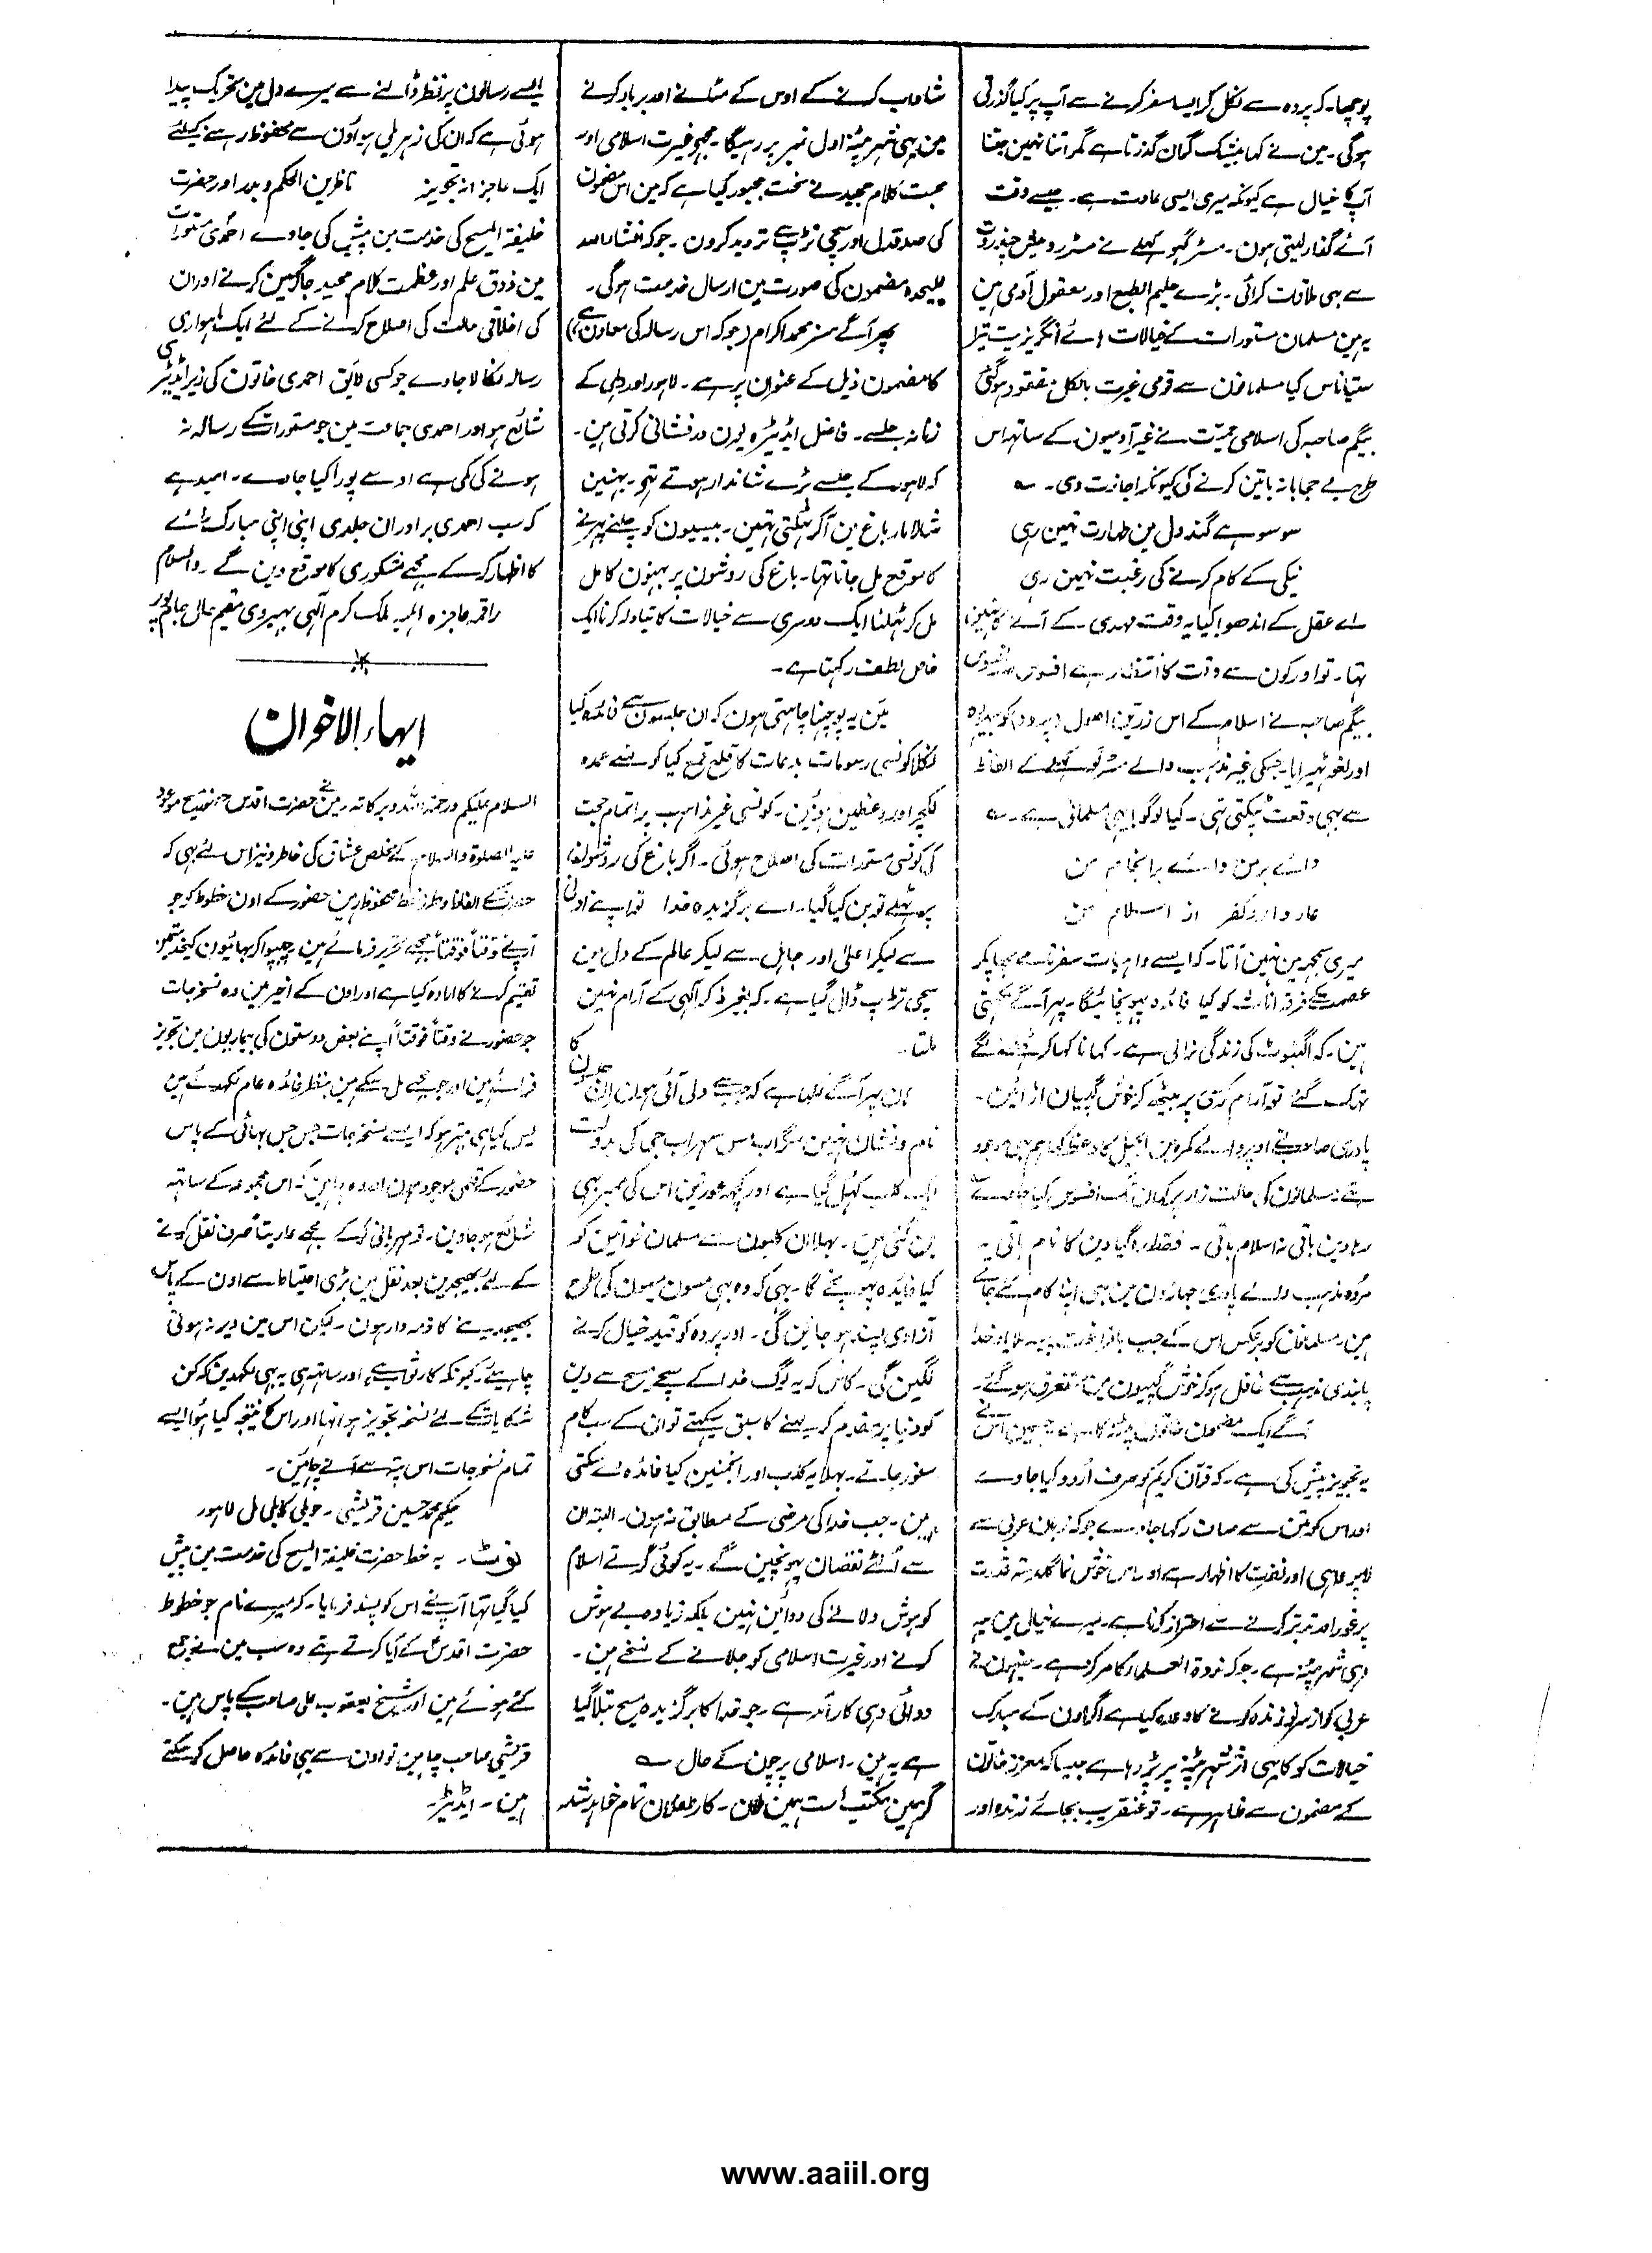 پوچھا۔ کہ پردہ سے نکل کر ایسا سفر کرنے سے آپ پر کیا گذرتی
ہوگی۔ مین نے کہا بیشک گمان گذرتا ہے مگر اتنا نہین جتنا
آپ کا خیال ہے کیونکہ میری ایسی عادت ہے۔ جیسے وقت
آئے گذار لیتی ہون۔ مسٹر گبو کہلے نے مسٹر رومیش چندر دت
سے بہی ملاقات کرائی۔ بڑے حلیم الطبع اور معقول آدمی ہین
یہ ہین مسلمان مستورات کے خیالات ہائے انگریزیت تیرا
ستیاناس کیا مسلمانون سے قومی غیرت بالکل مفقود ہوگئی
بیگم صاحبہ کی اسلامی حمیّت نے غیر آدمیون کے ساتھ اس
طرح بے حجابانہ باتین کرنے کی کیونکر اجازت دی۔ ؎
سو سو ہے گند دل مین طہارت نہین رہی
نیکی کے کام کرنے کی رغبت نہین رہی
اے عقل کے اندھو! کیا یہ وقت مہدی کے آنے کا نہین
تہا۔ تو اور کون سے وقت کا انتظار ہے افسوس
بیگم صاحبہ نے اسلام کے اس زرّین اصول (پردہ) کو بیہودہ
اور لغو ٹہیرایا۔ جسکی غیر مذہب والے مسٹر کے الفاظ
سے بہی وقعت ٹپکتی تہی۔ کیا لوگو! یہی مسلمانی ہے۔ ؎
وائے برمن وائے برانجام من
عار دارد کفر از اسلام من
میری سمجھ مین نہین آتا۔ کہ ایسے واہیات سفرنامے چھاپکر
عصمت کے فرقہ اناث کو کیا فائدہ پہونچائیگا۔ پہر آگے لکہتی
ہین۔ کہ اگنبوٹ کی زندگی نرالی ہے۔ کہانا کہا کر ٹہلنے لگے
تہک گئے تو آرام کرسی پر بیٹھ کر خوش گپیان اڑائین۔
پادری صاحب نے اوپر والے کمرہ مین انجیل کا وعظ کیا ہم بہی موجود
تہے۔ مسلمانون کی حالت زار پر کہان تک افسوس کیا جاوے ؎
رہا دین باقی نہ اسلام باقی۔ فقط رہ گیا دین کا نام باقی۔
مردہ مذہب والے پادری جہازون مین بہی اپنا کام کئے جاتے
ہین۔ مسلمانان کو برعکس اس کے جب
پابندی مذہب سے غافل ہوکر خوش گپیون مین مستغرق ہوگئے۔
آگے ایک مضمون خاتون پٹنہ کا ہے جسمین اُس نے
یہ تجویز پیش کی ہے۔ کہ قرآن کریم کو صرف اُردو کیا جاوے
اور اس کو متن سے صاف رکہا جاوے جو کہ زبان عربی سے
لاپرواہی اور نفرت کا اظہار ہے اور اس خوش نما گلدستہ قدرت
پر غور اور تدبّر کرنے سے احتراز کرنا ہے۔ میرے خیال مین یہ
وہی شہر پٹنہ ہے۔ جو کہ ندوۃ العلماء کا مرکز ہے۔ جنہون نے
عربی کو از سرنو زندہ کرنے کا وعدہ کیا ہے اگر اون کے مبارک
خیالات کو کا یہی اثر شہر پٹنہ پر پڑ رہا ہے جیسا کہ معزز خاتون
کے مضمون سے ظاہر ہے۔ تو عنقریب بجائے زندہ اور
شاداب کرنے کے اوس کے مٹانے اور برباد کرنے
مین یہی شہر پٹنہ اول نمبر پر رہیگا۔ مجھے غیرت اسلامی اور
محبت کلام مجید نے سخت مجبور کیا ہے کہ مین اس مضمون
کی صدق دل اور سچی تڑپ سے تردید کرون۔ جو کہ انشاء اللہ
علیحدہ مضمون کی صورت مین ارسال خدمت ہوگی۔
پھر آگے مسز محمد اکرام (جو کہ اس رسالہ کی معاون ہے)
کا مضمون ذیل کے عنوان پر ہے۔ لاہور اور دہلی کے
زنانہ جلسے۔ فاضل ایڈیٹرہ یون درفشانی کرتی ہین۔
کہ لاہور کے جلسے بڑے شاندار ہوتے تہے۔ بہنین
شالامار باغ مین آکر ٹہلتی تہین۔ بیبیون کو چلنے پہرنے
کا موقع مل جاتا تہا۔ باغ کی روشون پر بہنون کا مل
مل کر ٹہلنا ایک دوسری سے خیالات کا تبادلہ کرنا ایک
خاص لطف رکہتا ہے۔
مَین یہ پوچہنا چاہتی ہون کہ ان جلسون سے فائدہ کیا
نکلا کونسی رسومات بدعات کا قلع قمع کیا کونسے عمدہ
لکچر اور وعظین ہوئین۔ کونسی غیر مذاہب پر اتمام حجت
کی کونسی مستورات کی اصلاح ہوئی۔ اگر باغ کی روشون
پر ٹہلے تو بن کیا گیا۔ اے برگزیدہ خدا تو نے ادنیٰ
سے لیکر اعلیٰ اور جاہل سے لیکر عالم کے دل مین
سچی تڑپ ڈالی گیا ہے۔ کہ بغیر ذکر الٰہی کے آرام نہین
ملتا۔
ہان پہر آگے لکہا ہے کہ جب سے دلی آئی ہون ان جلسون کا
نام و نشان نہین مگر اب مس سہراب جی کی بدولت
ایک کلب کہل گیا ہے اور کچھ عورتین اس کی ممبر بہی
بن گئی ہین۔ بہلا ان کلبون سے مسلمان خواتین کو
کیا فائدہ پہونچے گا۔ یہی کہ وہ بہی مسون میمون کی طرح
آزادی پسند ہو جائین گی۔ اور پردہ کو قید خیال کرنے
لگین گی۔ کاش کہ یہ لوگ خدا کے سچے مسیح سے دین
کو دنیا پر مقدم کر لینے کا سبق سیکہتے تو ان کے سب کام
سنور جاتے۔ بہلا یہ کلب اور انجمنین کیا فائدہ دے سکتی
ہین۔ جب خدا کی مرضی کے مطابق نہ ہون۔ البتہ ان
سے اُلٹے نقصان پہونچین گے۔ یہ کوئی گرتے اسلام
کو ہوش دلانے کی دوائین نہین بلکہ زیادہ بے ہوش
کرنے اور غیرت اسلامی کو جلانے کے نسخے ہین۔
دوائی وہی کارآمد ہے۔ جو خدا کا برگزیدہ مسیح بتلا گیا
ہے یہ ہین۔ اسلامی پرچون کے حال ؎
گر ہمین مکتب است ہمین ملان۔ کار طفلان تمام خواہد شد
ایسے رسالون پر نظر ڈالنے سے میرے دل مین تحریک پیدا
ہوئی ہے کہ ان کی زہریلی ہواؤن سے محفوظ رہنے کیلئے
ایک عاجزانہ تجویز ناظرین الحکم و بدر اور حضرت
خلیفۃ المسیح کی خدمت مین پیش کی جاوے احمدی مستورات
مین ذوق علم اور عظمت کلام مجید جاگزین کرنے اور ان
کی اخلاقی حالت کی اصلاح کرنے کے لئے ایک ماہواری
رسالہ نکالا جاوے جو کسی لایق احمدی خاتون کی زیر ایڈیٹری
شائع ہو اور احمدی جماعت مین جو مستورات کے رسالہ نہ
ہونے کی کمی ہے اوسے پورا کیا جاوے۔ امید ہے
کہ سب احمدی برادران جلدی اپنی اپنی مبارک رائے
کا اظہار کرکے مجھے مشکوری کا موقع دین گے۔ والسلام
راقمہ عاجزہ اہلیہ ملک کرم الٰہی بہیروی مقیم حال
ایہاء الاخوان
السلام علیکم ورحمۃ اللہ وبرکاتہ۔ مین نے حضرت اقدس مسیح موعود
علیہ الصلوۃ والسلام کے مخلص عشاق کی خاطر و نیز اس لئے بہی کہ
حضور کے الفاظ و طرز خط محفوظ رہین حضور کے اون خطوط کو جو
آپ نے وقتاً فوقتاً مجھے تحریر فرمائے ہین۔ چھپوا کر بہائیون کیخدمت مین
تقسیم کرنے کا ارادہ کیا ہے اور اون کے اخیر مین وہ نسخہ جات
جو حضور نے وقتاً فوقتاً اپنے بعض دوستون کی بیماریون مین تجویز
فرمائے ہین اور جو مجھے مل سکے ہین بنظر فائدہ عام لکہدئے ہین
پس کیا ہی بہتر ہو کہ ایسے نسخہ جات جس جس بہائی کے پاس
حضور کے قلمی موجود ہون اور وہ چاہین کہ اس مجموعہ کے ساتھ
شائع ہو جاوین۔ تو مہربانی کرکے مجھے عاریتاً صرف نقل کرنے
کے لئے بھیجدین بعد نقل مین بڑی احتیاط سے اون کے پاس
بھیجدینے کا ذمہ وار ہون۔ لیکن اس مین دیر نہ ہونی
چاہیئے۔ کیونکہ کار ثواب ہے اور ساتھ ہی یہ بہی لکہدین کہ کن
شکایات کے لئے نسخہ تجویز ہوا تہا اور اس کا نتیجہ کیا ہوا ایسے
تمام نسخہ جات اس پتہ سے آنے چاہئین۔
حکیم محمد حسین قریشی۔ حویلی کابلی مل لاہور
نوٹ۔ یہ خط حضرت خلیفۃ المسیح کی خدمت مین پیش
کیا گیا تہا آپ نے اس کو پسند فرمایا۔ کہ میرے نام جو خطوط
حضرت اقدسؑ کے آیا کرتے تہے وہ سب مین نے جمع
کئے ہوئے ہین اور شیخ یعقوب علی صاحب کے پاس ہین۔
قریشی صاحب چاہین تو اون سے بہی فائدہ حاصل کر سکتے
ہین۔ ایڈیٹر۔
www.aaiil.org